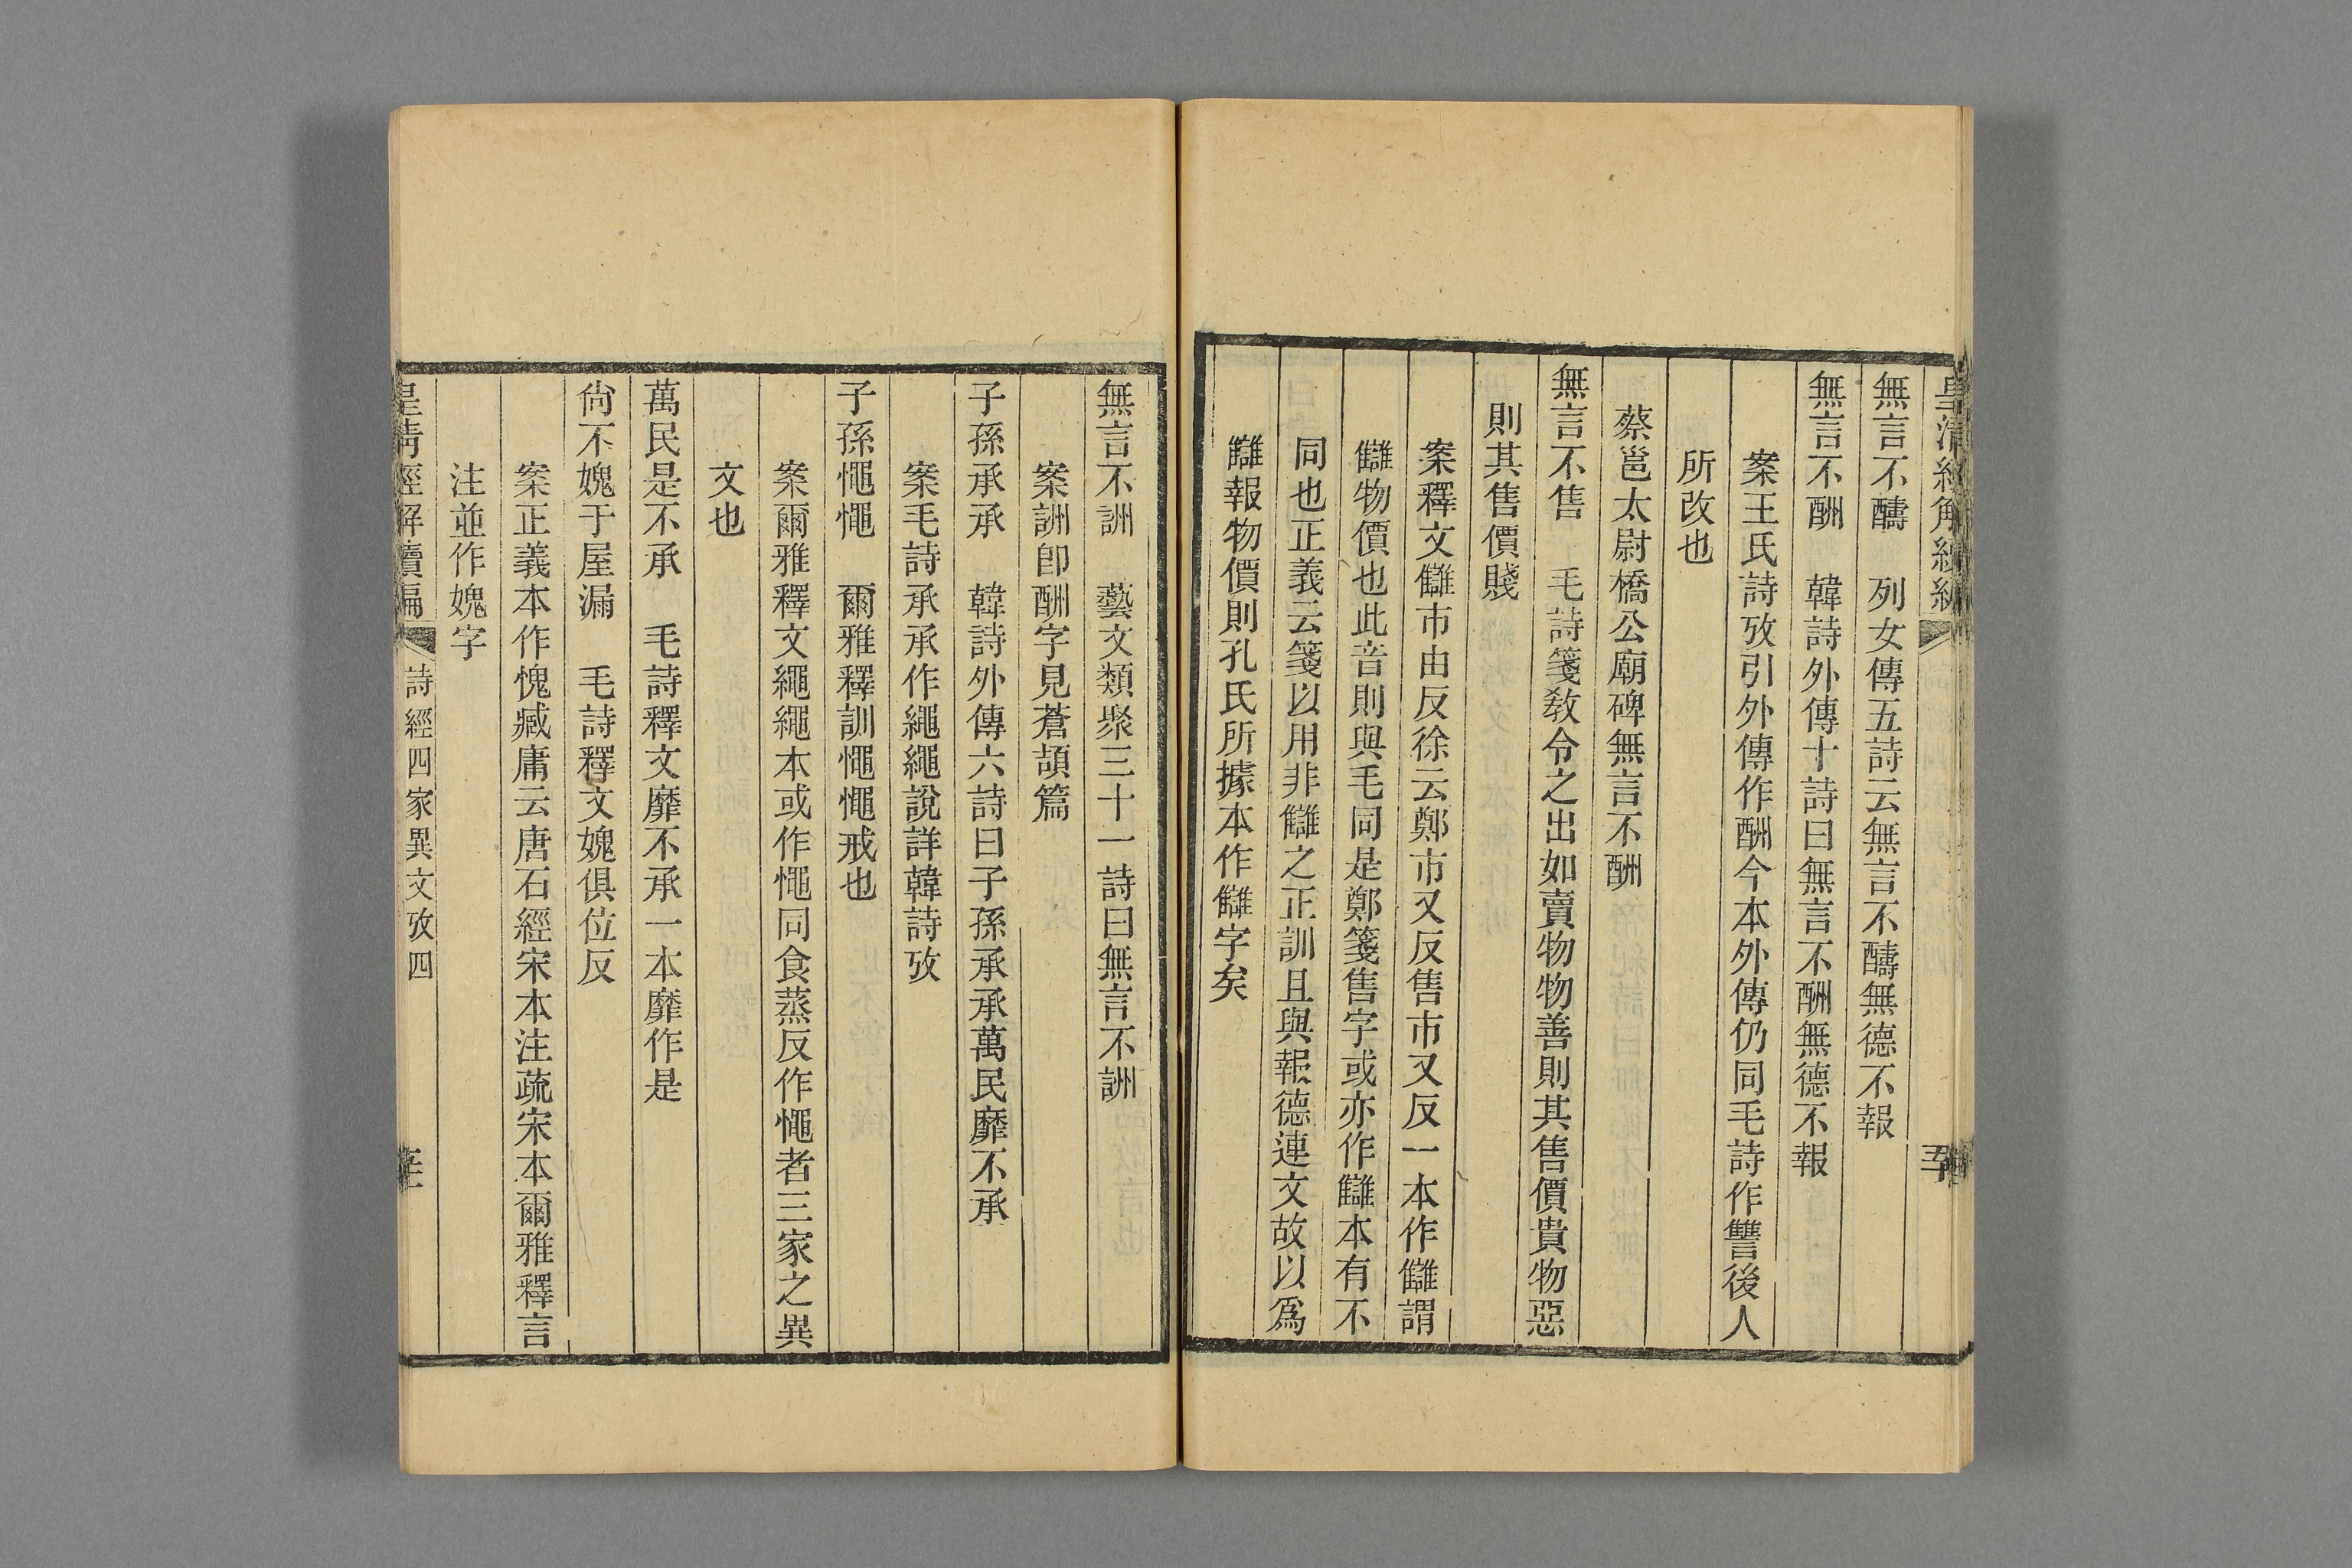 無言不醻　列女傳五詩云無言不醻無德不報
無言不酬　韓詩外傳十詩曰無言不酬無德不報
案王氏詩攷引外傳作酬今本外傳仍同毛詩作讐後人
所改也
蔡邕太尉橋公廟碑無言不酬
無言不售　毛詩箋敎令之出如賣物物善則其售價貴物惡
則其售價賤
案釋文讎市由反徐云鄭市又反售市又反一本作讎謂
讎物價也此音則與毛同是鄭箋售字或亦作讎本有不
同也正義云箋以用非讎之正訓且與報德連文故以爲
讎報物價則孔氏所據本作讎字矣
無言不詶　藝文類聚三十一詩曰無言不詶
案詶卽酬字見蒼頡篇
子孫承承　韓詩外傳六詩曰子孫承承萬民靡不承
案毛詩承承作繩繩說詳韓詩攷
子孫憴憴　爾雅釋訓憴憴戒也
案爾雅釋文繩繩本或作憴同食蒸反作憴者三家之異
文也
萬民是不承　毛詩釋文靡不承一本靡作是
尙不媿于屋漏　毛詩釋文媿俱位反
案正義本作愧臧庸云唐石經宋本注疏宋本爾雅釋言
注並作媿字
皇清經解續編　詩經四家異文攷四